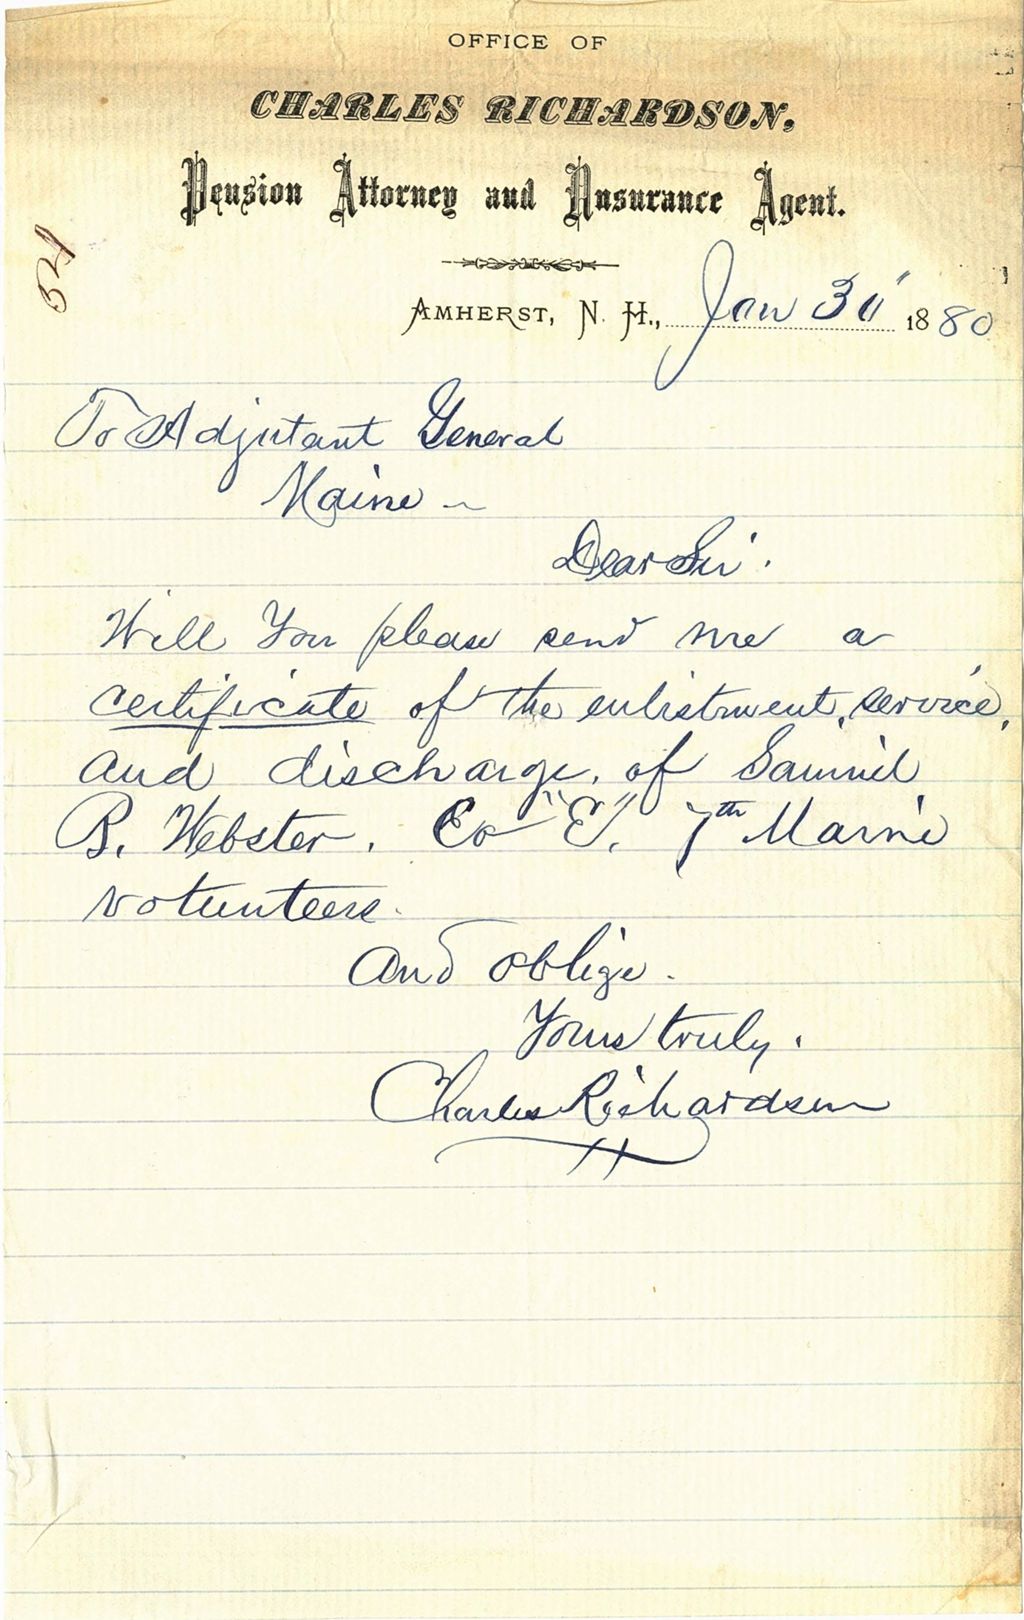 OFFICE OF
CHARLES RICHARDSON,
Pension Attorney and Insurance Agent.
521
AMHERST, N. H., Jan 30" 1880
To Adjutant General
Maine -
Dear Sir.
Will You please send me a
certificate of the enlistment, service,
and discharge, of Samuel
B. Webster, Co "E", 7th Maine
volunteers.
And oblige.
Yours truly.
Charles Richardson